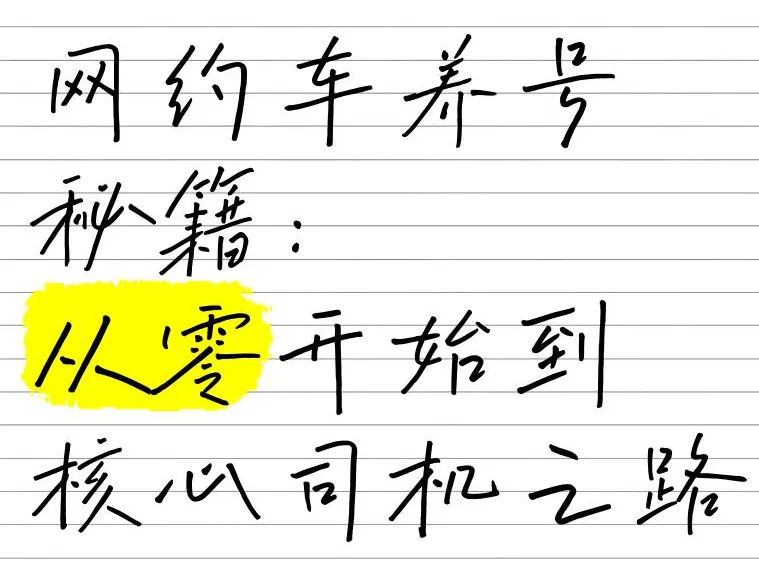 网约车养号
秘籍：
从零开始到
核心司机之路